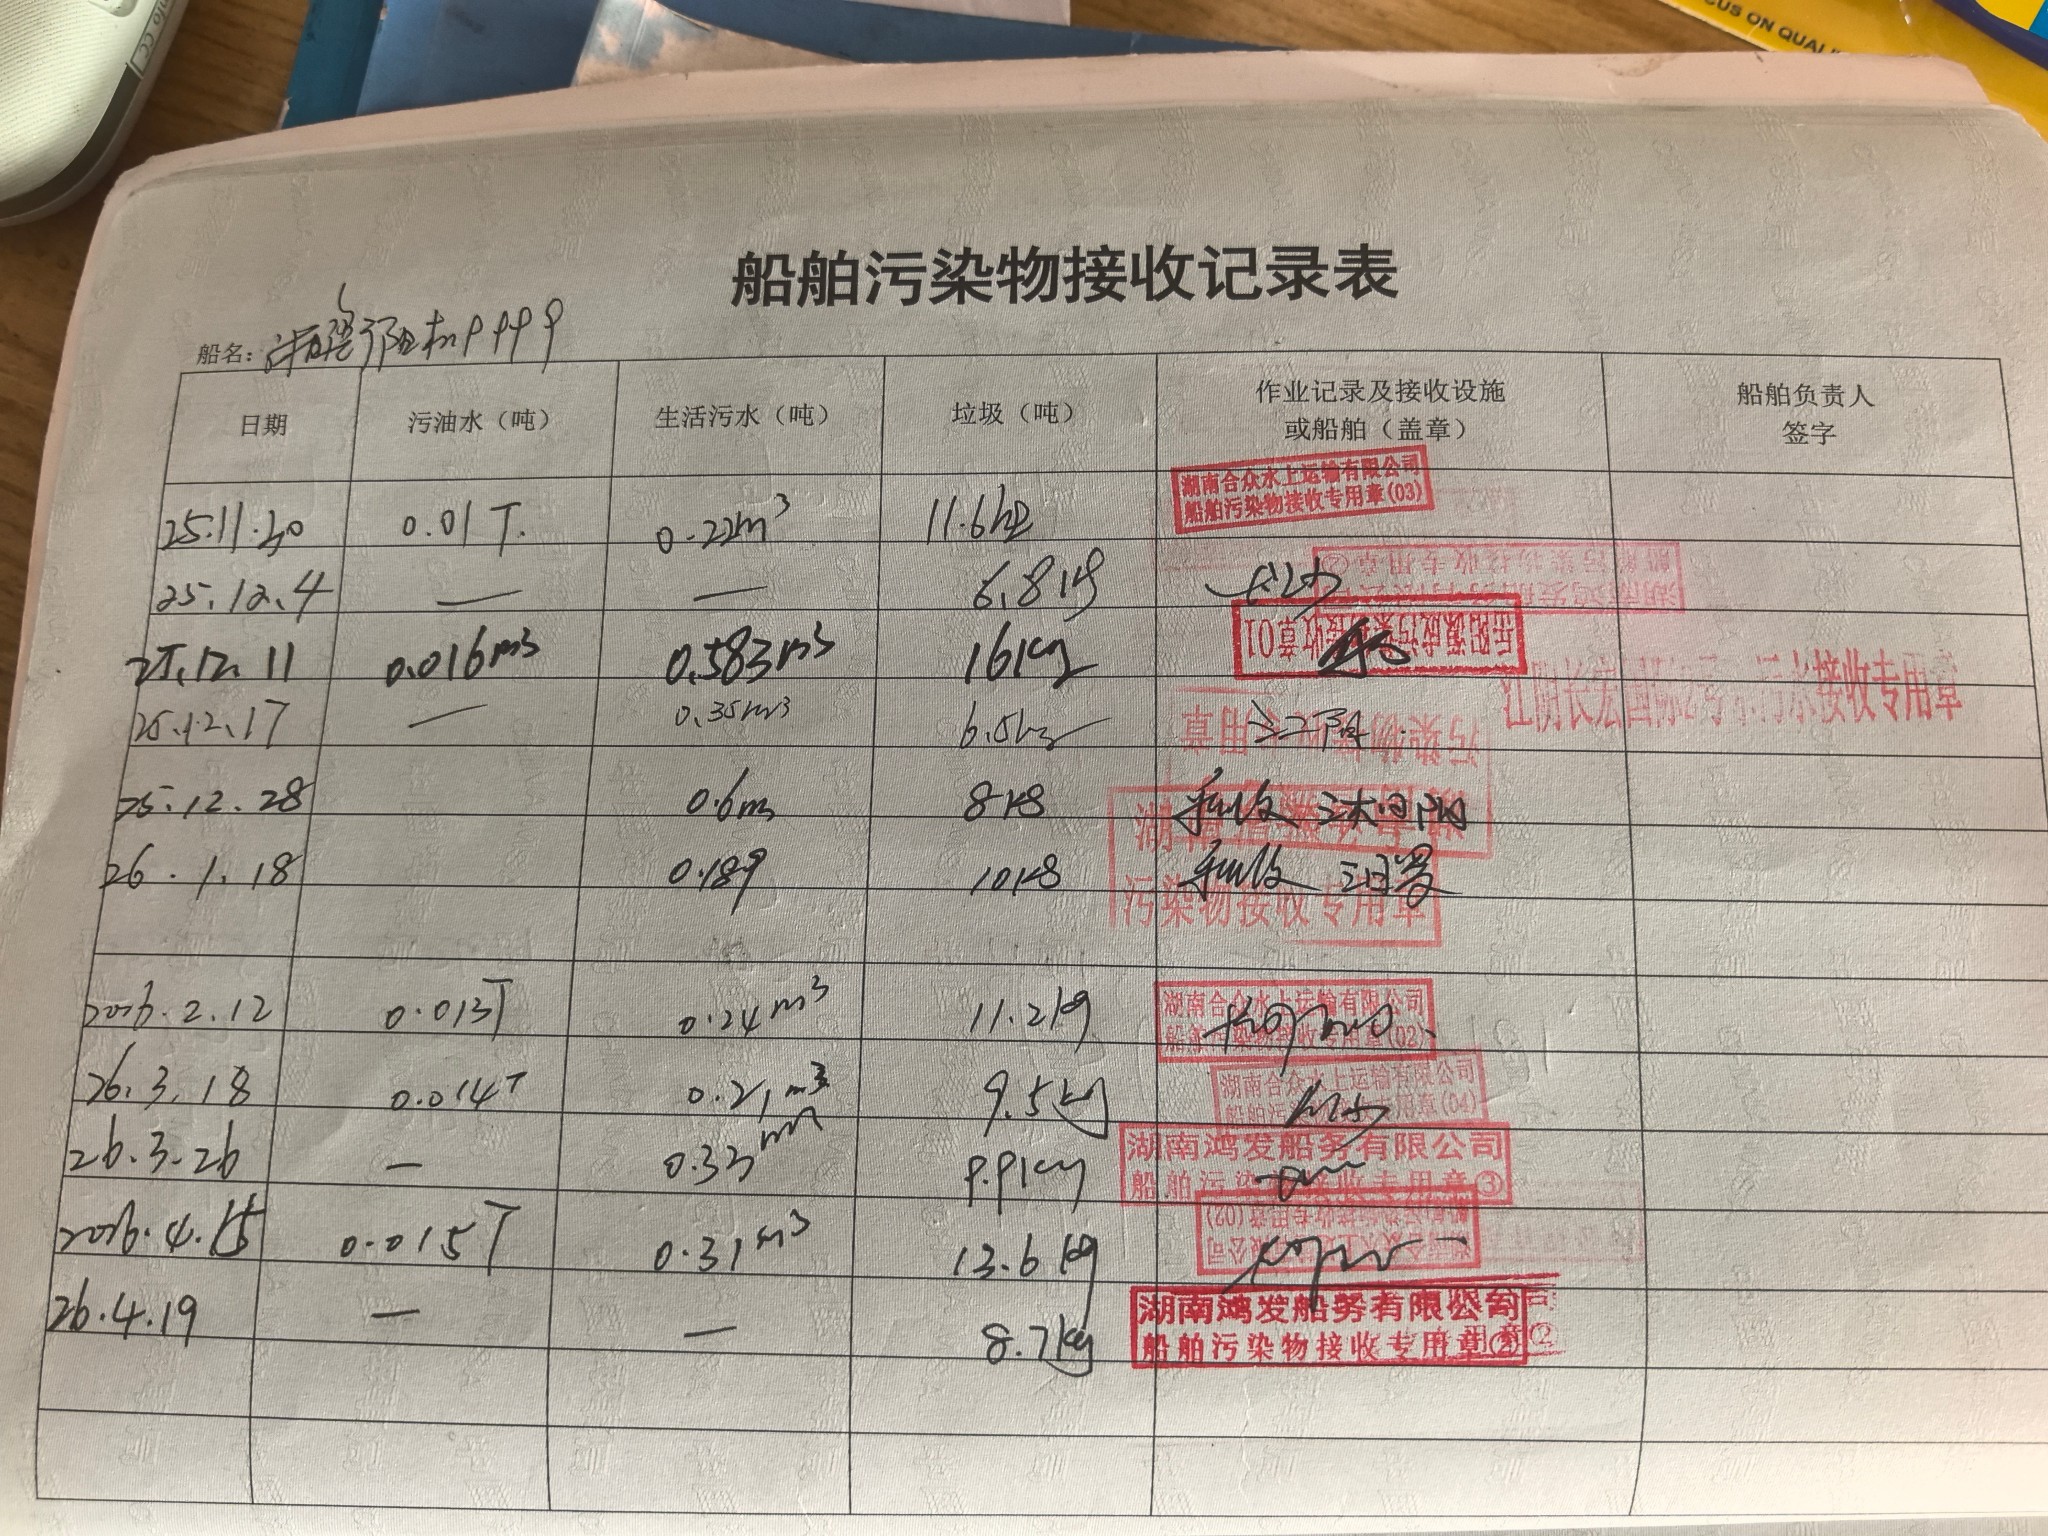 CUS ON QUAL
船舶污染物接收记录表
船名：
日期 污油水（吨） 生活污水（吨） 垃圾（吨） 作业记录及接收设施或船舶（盖章） 船舶负责人签字
25.11.30 0.01T. 0.22m³ 11.6kg 湖南合众水上运输有限公司
船舶污染物接收专用章(03)
25.12.4 — — 6.8kg
湖南鸿发船务有限公司
船舶污染物接收专用章②
25.12.11 0.016m³ 0.583m³ 16kg 岳阳源成污染物接收章01
25.12.17 — 0.35m³ 6.5kg 江阴
江阴长宏国际2号 污水接收专用章
污染物接收专用章
25.12.28 0.6m³ 8kg
26.1.18 0.189 10kg
污染物接收专用章
2026.2.12 0.013T 0.24m³ 11.2kg 湖南合众水上运输有限公司
船舶污染物接收专用章(02)
26.3.18 0.014T 0.21m³ 9.5kg 湖南合众水上运输有限公司
船舶污染物接收专用章(04)
26.3.26 — 0.33m³ 9.9kg 湖南鸿发船务有限公司
船舶污染物接收专用章③
2026.4.15 0.015T 0.31m³ 13.6kg 湖南合众水上运输有限公司
船舶污染物接收专用章(02)
26.4.19 — — 8.7kg 湖南鸿发船务有限公司
船舶污染物接收专用章②